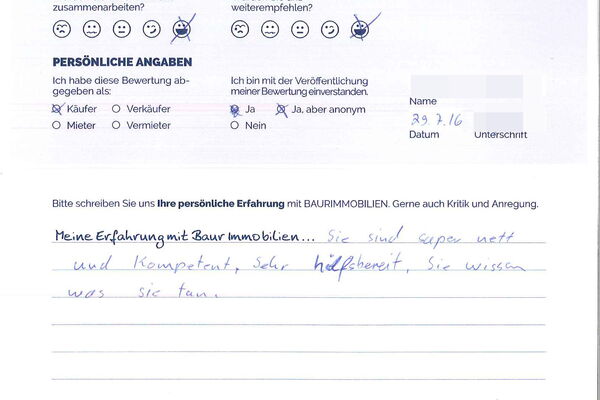 zusammenarbeiten?
weiterempfehlen?
PERSÖNLICHE ANGABEN
Ich habe diese Bewertung ab-
gegeben als:
Käufer Verkäufer
Mieter Vermieter
Ich bin mit der Veröffentlichung
meiner Bewertung einverstanden.
Ja Ja, aber anonym
Nein
Name
29.7.16
Datum Unterschrift
Bitte schreiben Sie uns Ihre persönliche Erfahrung mit BAURIMMOBILIEN. Gerne auch Kritik und Anregung.
Meine Erfahrung mit Baur Immobilien... Sie sind super nett
und kompetent, sehr hilfsbereit, Sie wissen
was sie tun.